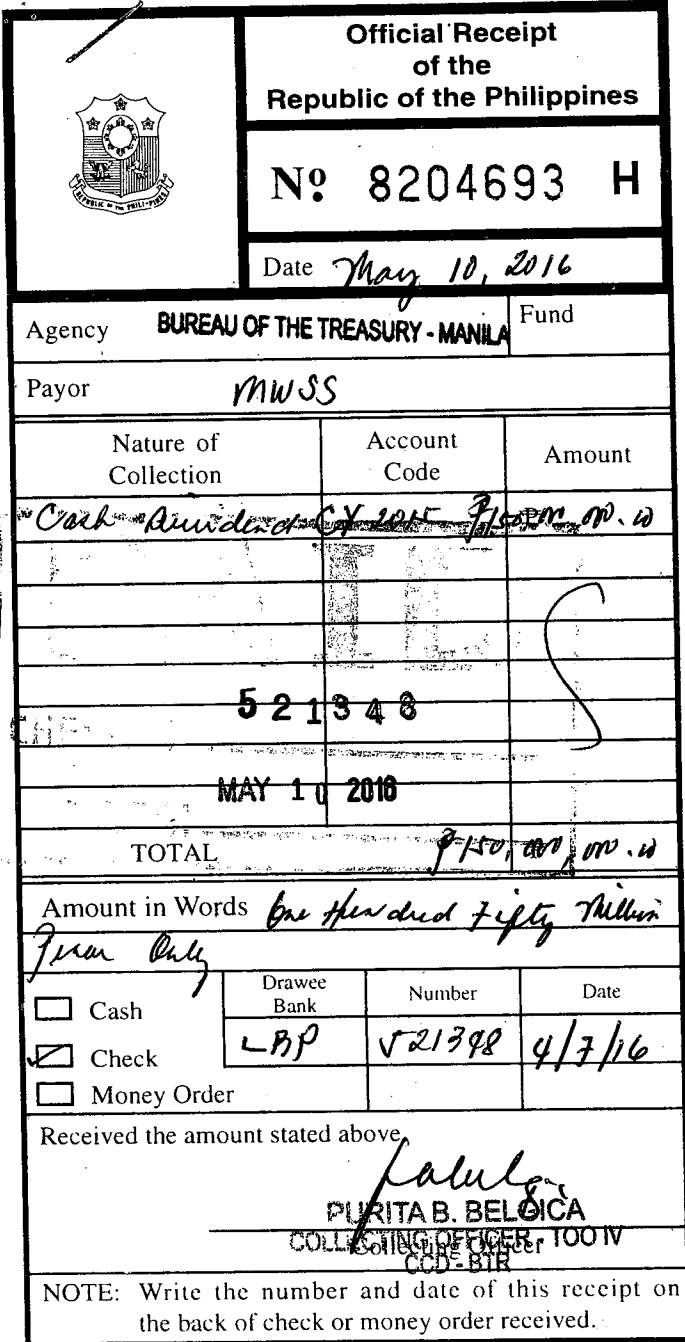 Official Receipt
of the
Republic of the Philippines
REPUBLIC OF THE PHILIPPINES
Nº 8204693 H
Date May 10, 2016
Agency BUREAU OF THE TREASURY - MANILA Fund
Payor MWSS
Nature of Collection Account Code Amount
Cash Dividend CY 2015 ₱150,000,000.00
521348
MAY 10 2016
TOTAL ₱150,000,000.00
Amount in Words One Hundred Fifty Million
Pesos Only
Drawee Bank Number Date
Cash
Check LBP 521348 4/7/16
Money Order
Received the amount stated above.
PURITA B. BELGICA
COLLECTING OFFICER - TOO IV
Collecting Officer
CCD - BTR
NOTE: Write the number and date of this receipt on
the back of check or money order received.